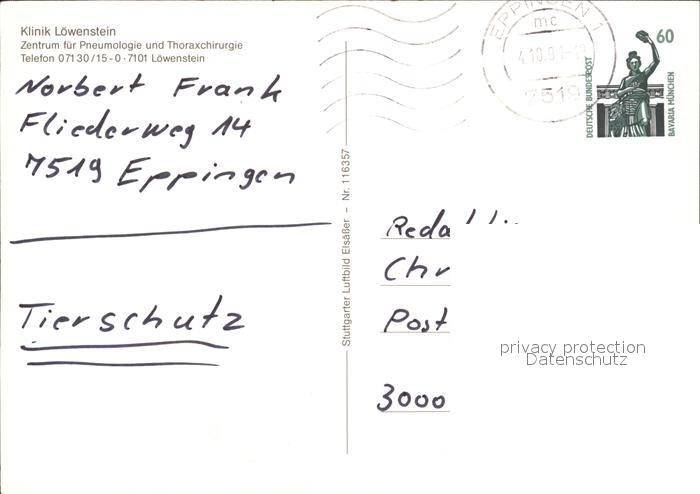 Klinik Löwenstein
Zentrum für Pneumologie und Thoraxchirurgie
Telefon 071 30/15-0 · 7101 Löwenstein
Norbert Frank
Fliederweg 14
7519 Eppingen
Tierschutz
Stuttgarter Luftbild Elsäßer – Nr. 116357
EPPINGEN 1
mc
7519
60
DEUTSCHE BUNDESPOST
BAVARIA MÜNCHEN
Reda
Chr
Post
3000
privacy protection
Datenschutz